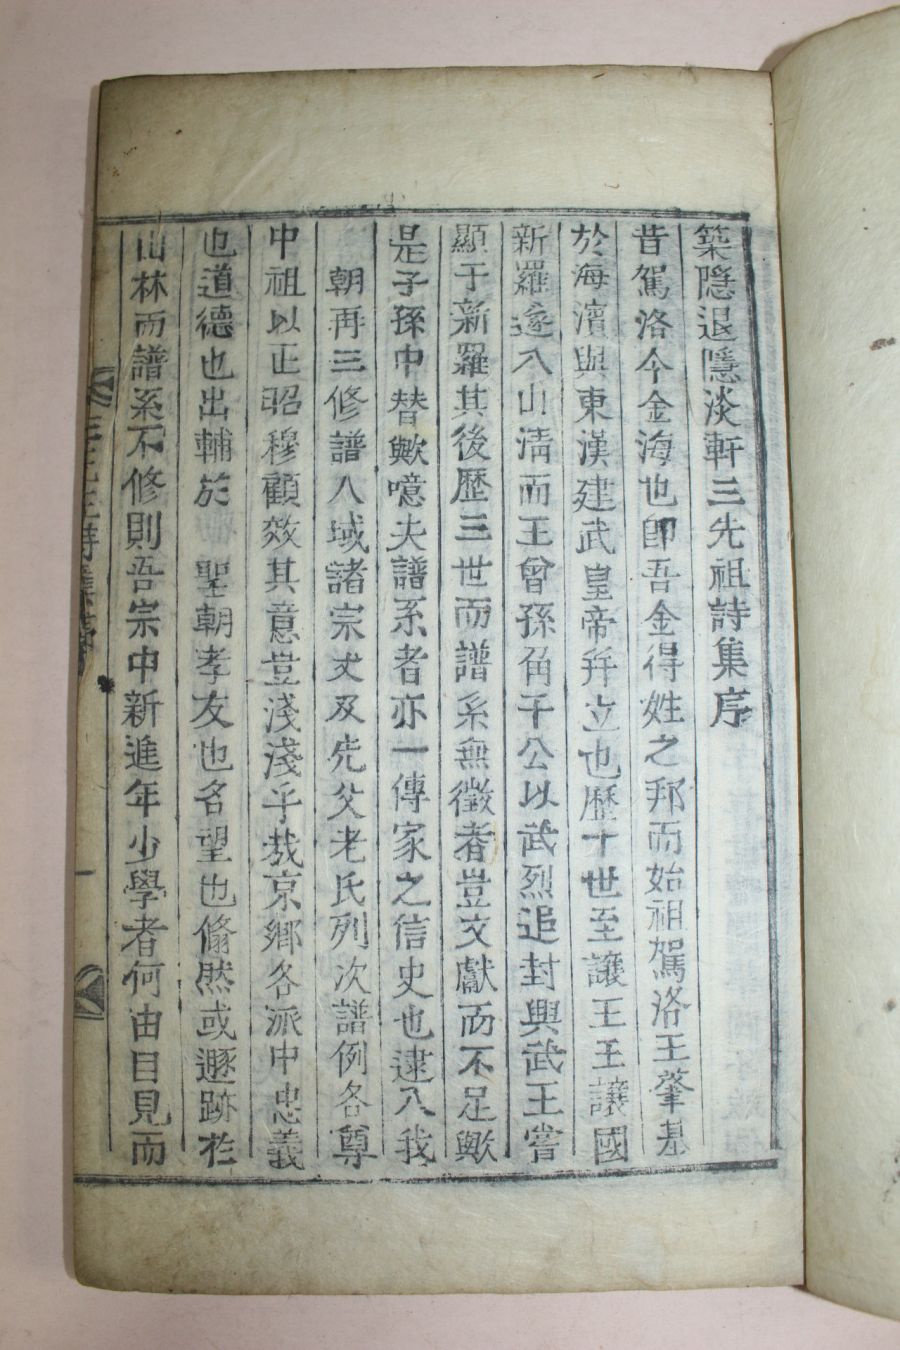 築隱退隱淡軒三先祖詩集序
昔駕洛今金海也卽吾金得姓之邦而始祖駕洛王肇基
於海濱與東漢建武皇帝幷立也歷十世至讓王王讓國
新羅遂入山淸而王曾孫角干公以武烈追封興武王嘗
顯于新羅其後歷三世而譜系無徵者豈文獻而不足歟
是子孫中替歟噫夫譜系者亦一傳家之信史也逮入我
朝再三修譜八域諸宗丈及先父老氏列次譜例各尊
中祖以正昭穆顧效其意豈淺淺乎哉京鄉各派中忠義
也道德也出輔於 聖朝孝友也名望也翛然或遯跡於
山林而譜系不修則吾宗中新進年少學者何由目見而